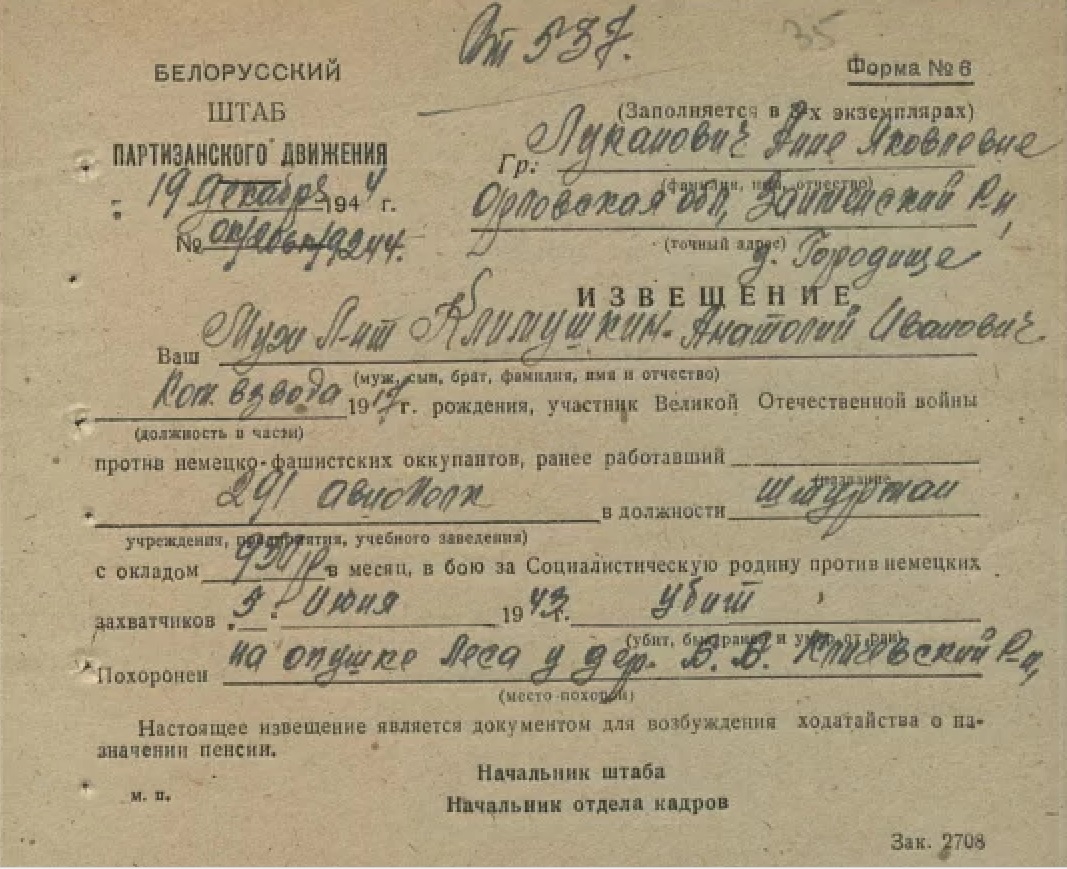 Вт 537.
35
БЕЛОРУССКИЙ
ШТАБ
ПАРТИЗАНСКОГО ДВИЖЕНИЯ
19 декабря 1944 г.
№ 9244.
Форма № 6
(Заполняется в 2-х экземплярах)
Гр: Лукапович Анне Яковлевне
(фамилия, имя, отчество)
Орловская обл, Р-н,
(точный адрес)
д. Городище
ИЗВЕЩЕНИЕ
Ваш Муж Л-нт Климушкин Анатолий Иванович
(муж, сын, брат, фамилия, имя и отчество)
Ком. взвода 1917 г. рождения, участник Великой Отечественной войны
(должность в части)
против немецко-фашистских оккупантов, ранее работавший
(название
291 авиополк в должности штурман
учреждения, предприятия, учебного заведения)
с окладом 950 р в месяц, в бою за Социалистическую родину против немецких
захватчиков „5 " Июня 1943 г. убит
(убит, был ранен и умер от ран)
Похоронен на опушке леса у дер. В. В. Кличевский Р-н,
(место похорон)
Настоящее извещение является документом для возбуждения ходатайства о на-
значении пенсии.
Начальник штаба
м. п.
Начальник отдела кадров
Зак. 2708